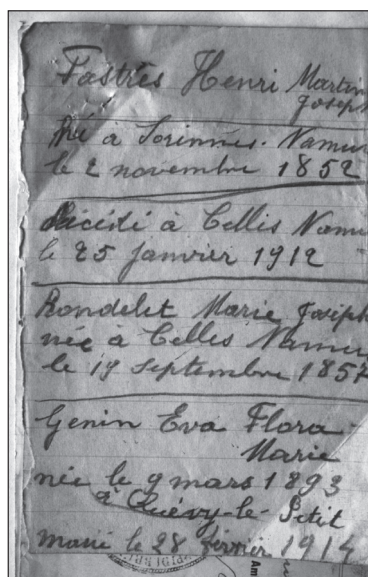 Fastrès Henri Martin
Joseph
Né à Sorinnes. Namur
le 2 novembre 1852
Décédé à Cellis Namu
le 25 janvier 1912
Rondelet Marie Joseph
née à Celles Namur
le 19 septembre 1857
Genin Eva Flora
Marie
née le 9 mars 1893
à Quévy-le-Petit
marié le 28 février 1914
Am